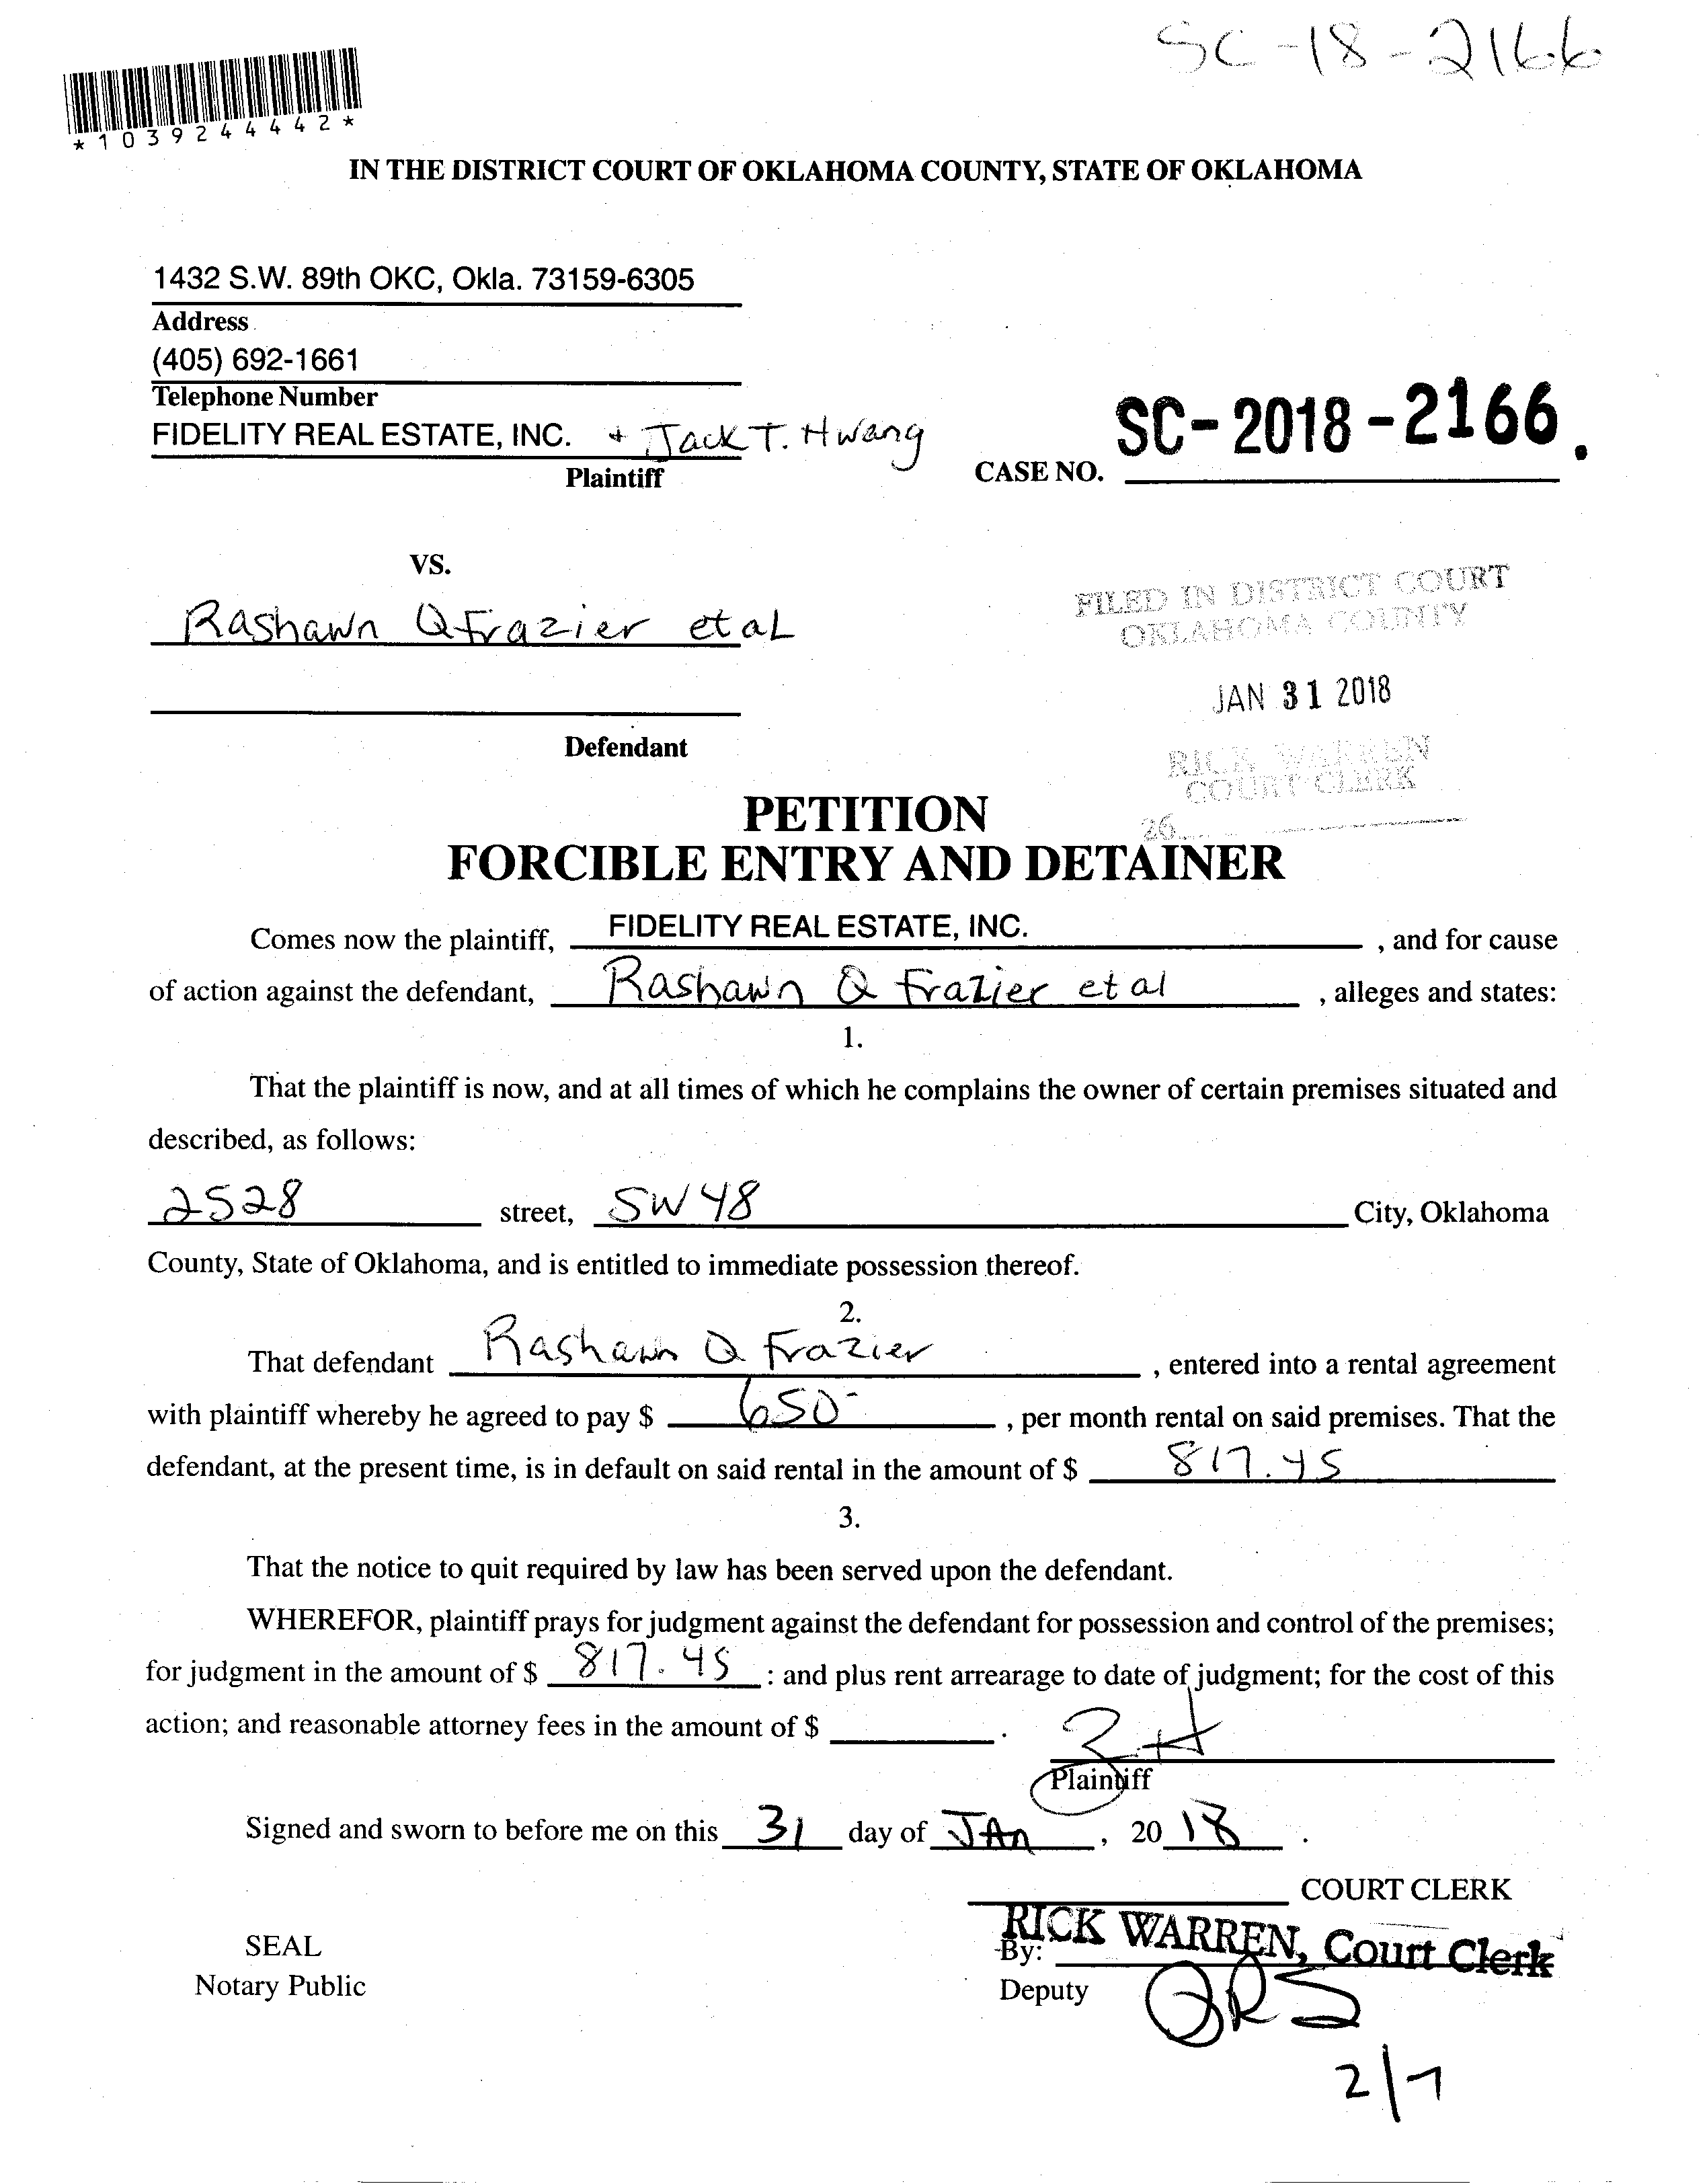 SC-18-2166
*1039244442*
IN THE DISTRICT COURT OF OKLAHOMA COUNTY, STATE OF OKLAHOMA
1432 S.W. 89th OKC, Okla. 73159-6305
Address
(405) 692-1661
Telephone Number
FIDELITY REAL ESTATE, INC. + Jack T. Hwang
Plaintiff
CASE NO. SC-2018-2166.
VS.
Rashawn Q Frazier et al
Defendant
FILED IN DISTRICT COURT
OKLAHOMA COUNTY
JAN 31 2018
RICK WARREN
COURT CLERK
26
PETITION
FORCIBLE ENTRY AND DETAINER
Comes now the plaintiff, FIDELITY REAL ESTATE, INC. , and for cause
of action against the defendant, Rashawn Q Frazier et al , alleges and states:
1.
That the plaintiff is now, and at all times of which he complains the owner of certain premises situated and
described, as follows:
2528 street, SW 48 City, Oklahoma
County, State of Oklahoma, and is entitled to immediate possession thereof.
2.
That defendant Rashawn Q Frazier , entered into a rental agreement
with plaintiff whereby he agreed to pay $ 650- , per month rental on said premises. That the
defendant, at the present time, is in default on said rental in the amount of $ 817.45
3.
That the notice to quit required by law has been served upon the defendant.
WHEREFOR, plaintiff prays for judgment against the defendant for possession and control of the premises;
for judgment in the amount of $ 817.45 : and plus rent arrearage to date of judgment; for the cost of this
action; and reasonable attorney fees in the amount of $ .
Plaintiff
Signed and sworn to before me on this 31 day of JAn , 20 18 .
COURT CLERK
RICK WARREN, Court Clerk
SEAL
By:
Notary Public
Deputy
2/7